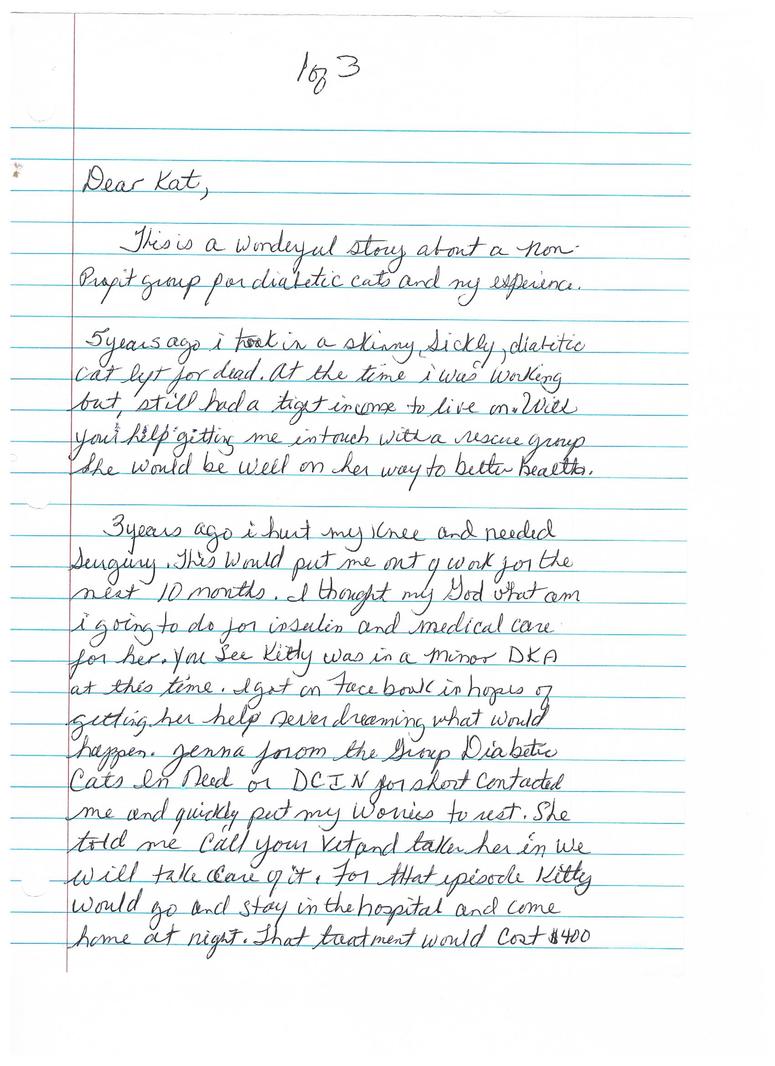 1 of 3
Dear Kat,
This is a wonderful story about a non-
Profit group for diabetic cats and my experience.
5 years ago i took in a skinny, Sickly, diabetic
cat left for dead. At the time i was working
but, still had a tight income to live on. With
your help getting me in touch with a rescue group
She would be well on her way to better health.
3 years ago i hurt my Knee and needed
Surgury. This would put me out of work for the
next 10 months. I thought my God what am
i going to do for insulin and medical care
for her. You See Kitty was in a minor DKA
at this time. I got on Face book in hopes of
getting her help never dreaming what would
happen. Jenna from the Group Diabetic
Cats In Need or DCIN for short Contacted
me and quickly put my Worries to rest. She
told me Call your Vet and take her in we
will take Care of it. For that episode Kitty
would go and stay in the hospital and come
home at night. That treatment would Cost $400